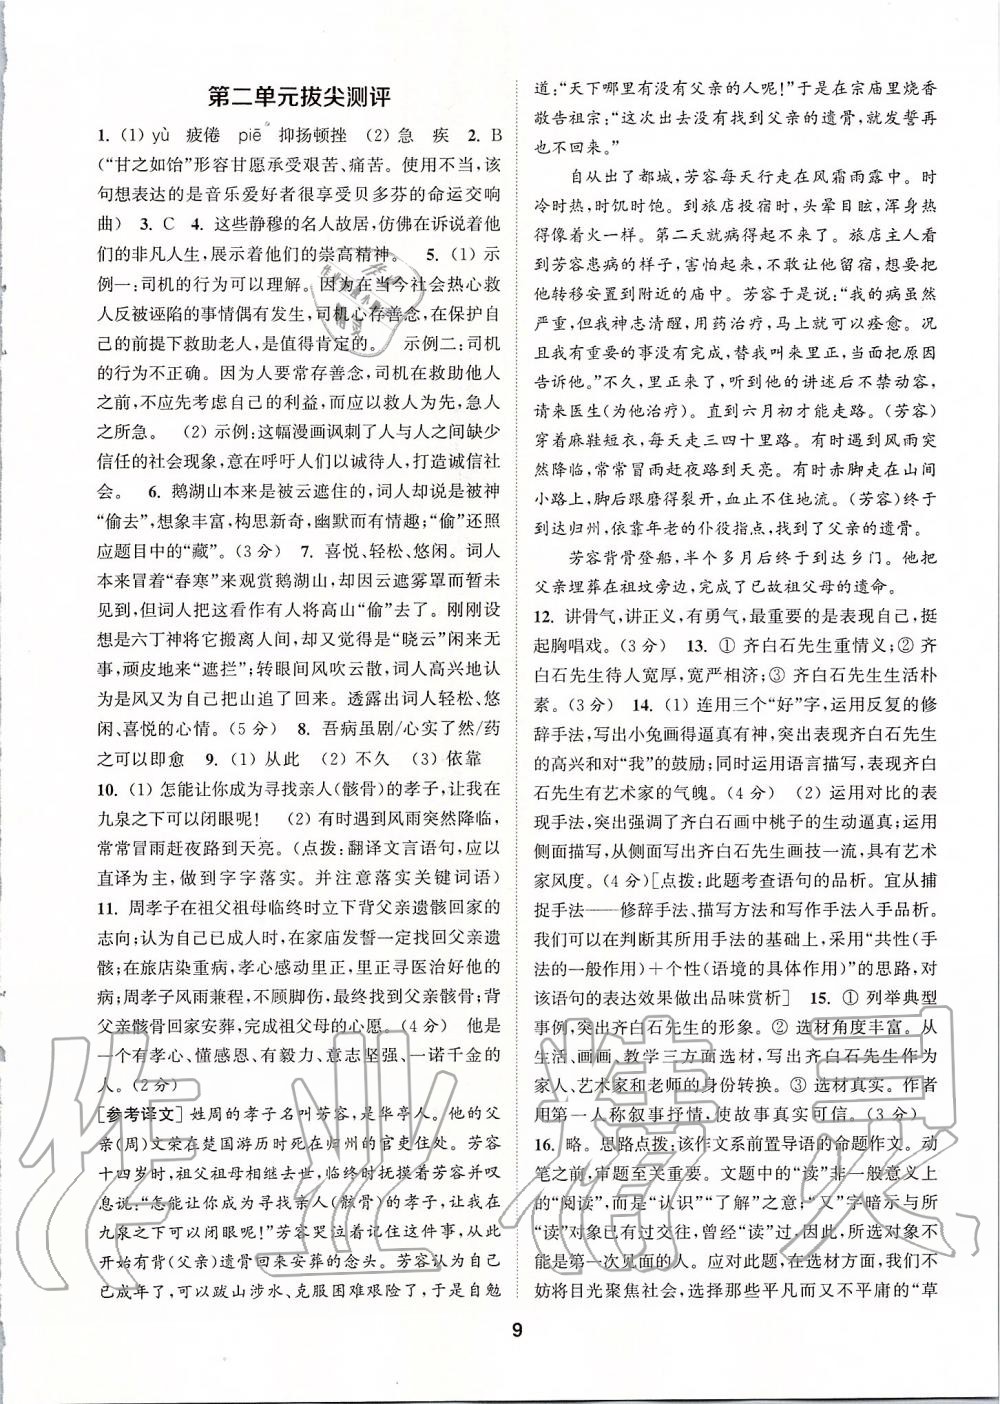 第二单元拔尖测评
1. (1) yù 疲倦 piē 抑扬顿挫 (2) 急 疾 2. B
(“甘之如饴”形容甘愿承受艰苦、痛苦。使用不当,该
句想表达的是音乐爱好者很享受贝多芬的命运交响
曲) 3. C 4. 这些静穆的名人故居,仿佛在诉说着他
们的非凡人生,展示着他们的崇高精神。 5. (1) 示
例一:司机的行为可以理解。因为在当今社会热心救
人反被诬陷的事情偶有发生,司机心存善念,在保护自
己的前提下救助老人,是值得肯定的。 示例二:司机
的行为不正确。因为人要常存善念,司机在救助他人
之前,不应先考虑自己的利益,而应以救人为先,急人
之所急。 (2) 示例:这幅漫画讽刺了人与人之间缺少
信任的社会现象,意在呼吁人们以诚待人,打造诚信社
会。 6. 鹅湖山本来是被云遮住的,词人却说是被神
“偷去”,想象丰富,构思新奇,幽默而有情趣;“偷”还照
应题目中的“藏”。(3 分) 7. 喜悦、轻松、悠闲。词人
本来冒着“春寒”来观赏鹅湖山,却因云遮雾罩而暂未
见到,但词人把这看作有人将高山“偷”去了。刚刚设
想是六丁神将它搬离人间,却原来是“晓云”闲来无
事,顽皮地来“遮拦”;转眼间风吹云散,词人高兴地认
为是风又为自己把山追了回来。透露出词人轻松、悠
闲、喜悦的心情。(5 分) 8. 吾病虽剧/心实了然/药
之可以即愈 9. (1) 从此 (2) 不久 (3) 依靠
10. (1) 怎能让你成为寻找亲人(骸骨)的孝子,让我在
九泉之下可以闭眼呢! (2) 有时遇到风雨突然降临,
常常冒雨赶夜路到天亮。(点拨:翻译文言语句,应以
直译为主,做到字字落实。并注意落实关键词语)
11. 周孝子在祖父祖母临终时立下背父亲遗骸回家的
志向;认为自己已成人时,在家庙发誓一定找回父亲遗
骸;在旅店染重病,孝心感动里正,里正寻医治好他的
病;周孝子风雨兼程,不顾脚伤,最终找到父亲骸骨;背
父亲骸骨回家安葬,完成祖父母的心愿。(4 分) 他是
一个有孝心、懂感恩、有毅力、意志坚强、一诺千金的
人。(2 分)
[参考译文] 姓周的孝子名叫芳容,是华亭人。他的父
亲(周)文荣在楚国游历时死在归州的官吏住处。芳容
十四岁时,祖父祖母相继去世,临终时抚摸着芳容并叹
息说:“怎能让你成为寻找亲人(骸骨)的孝子,让我在
九泉之下可以闭眼呢!”芳容哭泣着记住这件事,从此
开始有背(父亲)遗骨回来安葬的念头。芳容认为自己
已成年了,可以跋山涉水、克服困难艰险了,于是自勉
道:“天下哪里有没有父亲的人呢!”于是在宗庙里烧香
敬告祖宗:“这次出去没有找到父亲的遗骨,就发誓再
也不回来。”
自从出了都城,芳容每天行走在风霜雨露中。时
冷时热,时饥时饱。到旅店投宿时,头晕目眩,浑身热
得像着火一样。第二天就病得起不来了。旅店主人看
到芳容患病的样子,害怕起来,不敢让他留宿,想要把
他转移安置到附近的庙中。芳容于是说:“我的病虽然
严重,但我神志清醒,用药治疗,马上就可以痊愈。况
且我有重要的事没有完成,替我叫来里正,当面把原因
告诉他。”不久,里正来了,听到他的讲述后不禁动容,
请来医生(为他治疗)。直到六月初才能走路。(芳容)
穿着麻鞋短衣,每天走三四十里路。有时遇到风雨突
然降临,常常冒雨赶夜路到天亮。有时赤脚走在山间
小路上,脚后跟磨得裂开,血止不住地流。(芳容)终于
到达归州,依靠年老的仆役指点,找到了父亲的遗骨。
芳容背骨登船,半个多月后终于到达乡门。他把
父亲埋葬在祖坟旁边,完成了已故祖父母的遗命。
12. 讲骨气,讲正义,有勇气,最重要的是表现自己,挺
起胸唱戏。(3 分) 13. ① 齐白石先生重情义;② 齐
白石先生待人宽厚,宽严相济;③ 齐白石先生生活朴
素。(3 分) 14. (1) 连用三个“好”字,运用反复的修
辞手法,写出小兔画得逼真有神,突出写出了齐白石先生
的高兴和对“我”的鼓励;同时运用语言描写,写出齐白
石先生有艺术家的气魄。(4 分) (2) 运用对比的表
现手法,突出强调了齐白石画中桃子的生动逼真;运用
侧面描写,从侧面写出齐白石先生画技一流,具有艺术
家风度。(4 分)[点拨:此题考查语句的品析。宜从捕
捉手法——修辞手法、描写方法和写作手法入手品析。
我们可以在判断其所用手法的基础上,采用“共性(手
法的一般作用)+个性(语境的具体作用)”的思路,对
该语句的表达效果做出品味赏析] 15. ① 列举典型
事例,突出齐白石先生的形象。② 选材角度丰富。从
生活、画画、教学三方面选材,写出齐白石先生作为
家人、艺术家和老师的身份转换。③ 选材真实。作者
用第一人称叙事抒情,使故事真实可信。(3 分)
16. 略。思路点拨:该作文系前置导语的命题作文。动
笔之前,审题至关重要。文题中的“读”非一般意义上
的“阅读”,而是“认识”“了解”之意;“又”字暗示与所
“读”对象已有过交往,曾经“读”过,因此,所选对象不
能是第一次见面的人。应对此题,在选材方面,我们不
妨将目光聚焦社会,选择那些平凡而又不平庸的“草
9
作业精灵